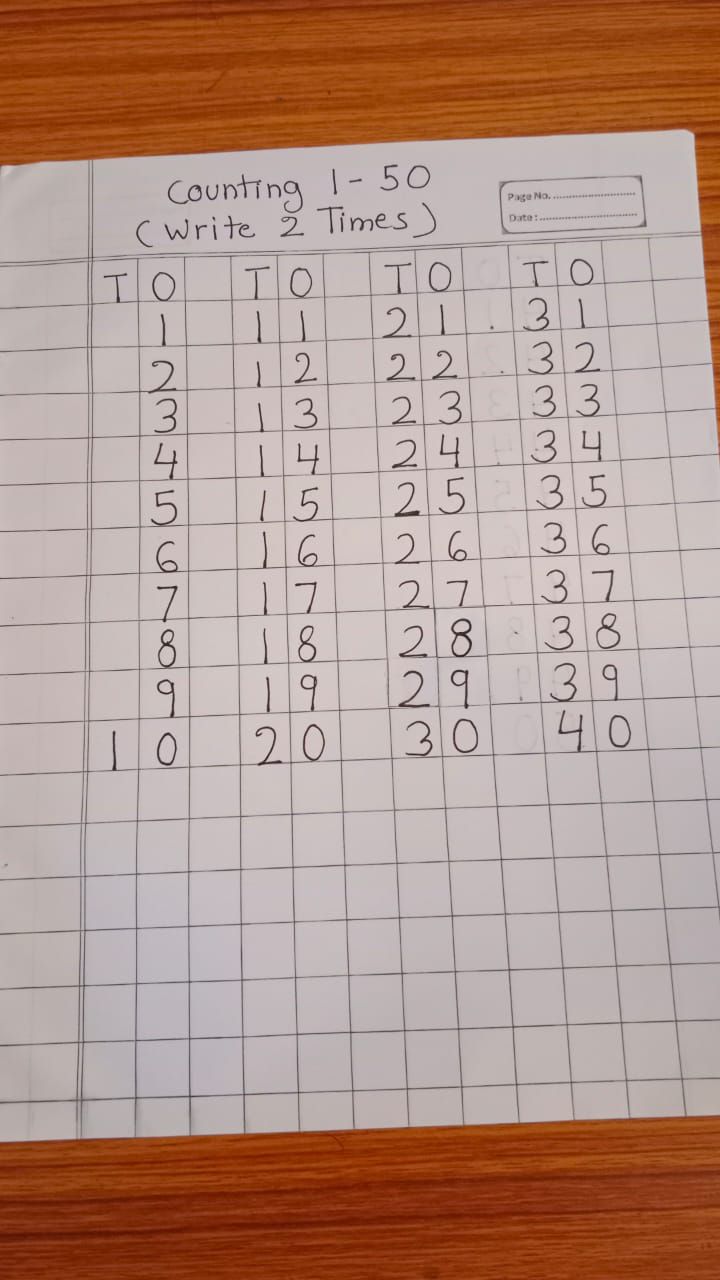 Counting 1-50
(Write 2 Times)
Page No. ........................
Date : ............................
T O T O T O T O
1 11 21 . 31
2 12 22 . 32
3 13 23 33
4 14 24 34
5 15 25 35
6 16 26 36
7 17 27 37
8 18 28 38
9 19 29 39
10 20 30 40